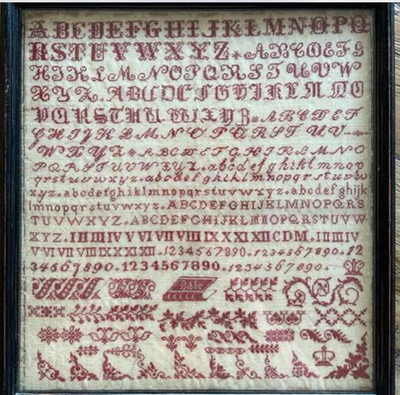 ABCDEFGHIJKLMNOPQ
RSTUVWXYZ. ABCDEFG
HIJKLMNOPQRSTUVW
XYZ. ABCDEFGHIKLMNO
PQRSTUVWXYZ. ABCDEF
GHIJKLMNOPQRSTUV
WXYZ. ABCDEFGHIJKLMNO
PQRSTUVWXYZ. abcdefghiklmnop
qrstuvwxyz. abcdefghijklmnopqrstuvw
xyz. abcdefghijklmnopqrstuvwxyz. abcdefghijk
lmnopqrstuvwxyz. ABCDEFGHIJKLMNOPQRS
TUVWXYZ. ABCDEFGHIJKLMNOPQRSTUVW
XYZ. I II III IV V VI VII VIII IX X XI XII C D M. I II III IV
V VI VII VIII IX X XI XII. 1234567890. 1234567890. 12
34567890. 1234567890. 1234567890.
Bible